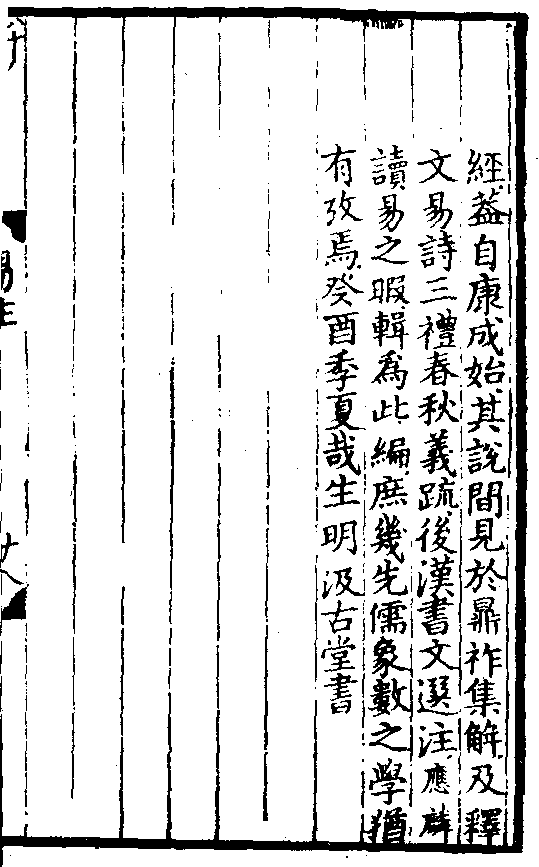 經蓋自康成始其說間見於鼎祚集解及釋
文易詩三禮春秋義疏後漢書文選注應麟
讀易之暇輯為此編庶幾先儒象數之學猶
有攷焉癸酉季夏哉生明汲古堂書